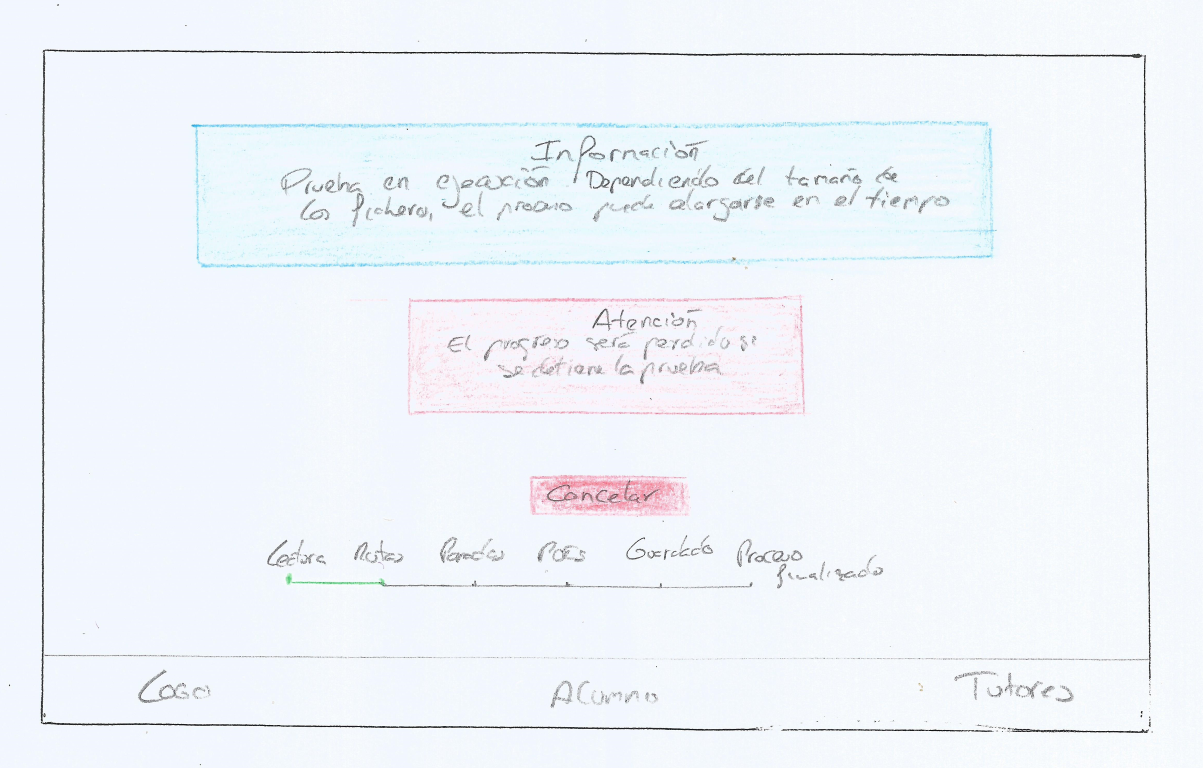 Información
Prueba en ejecución. Dependiendo del tamaño de
los ficheros, el proceso puede alargarse en el tiempo
Atención
El progreso será perdido si
se detiene la prueba
Cancelar
Lectura Rutas Paradas POIs Guardado Proceso
finalizado
Logo Alumno Tutores